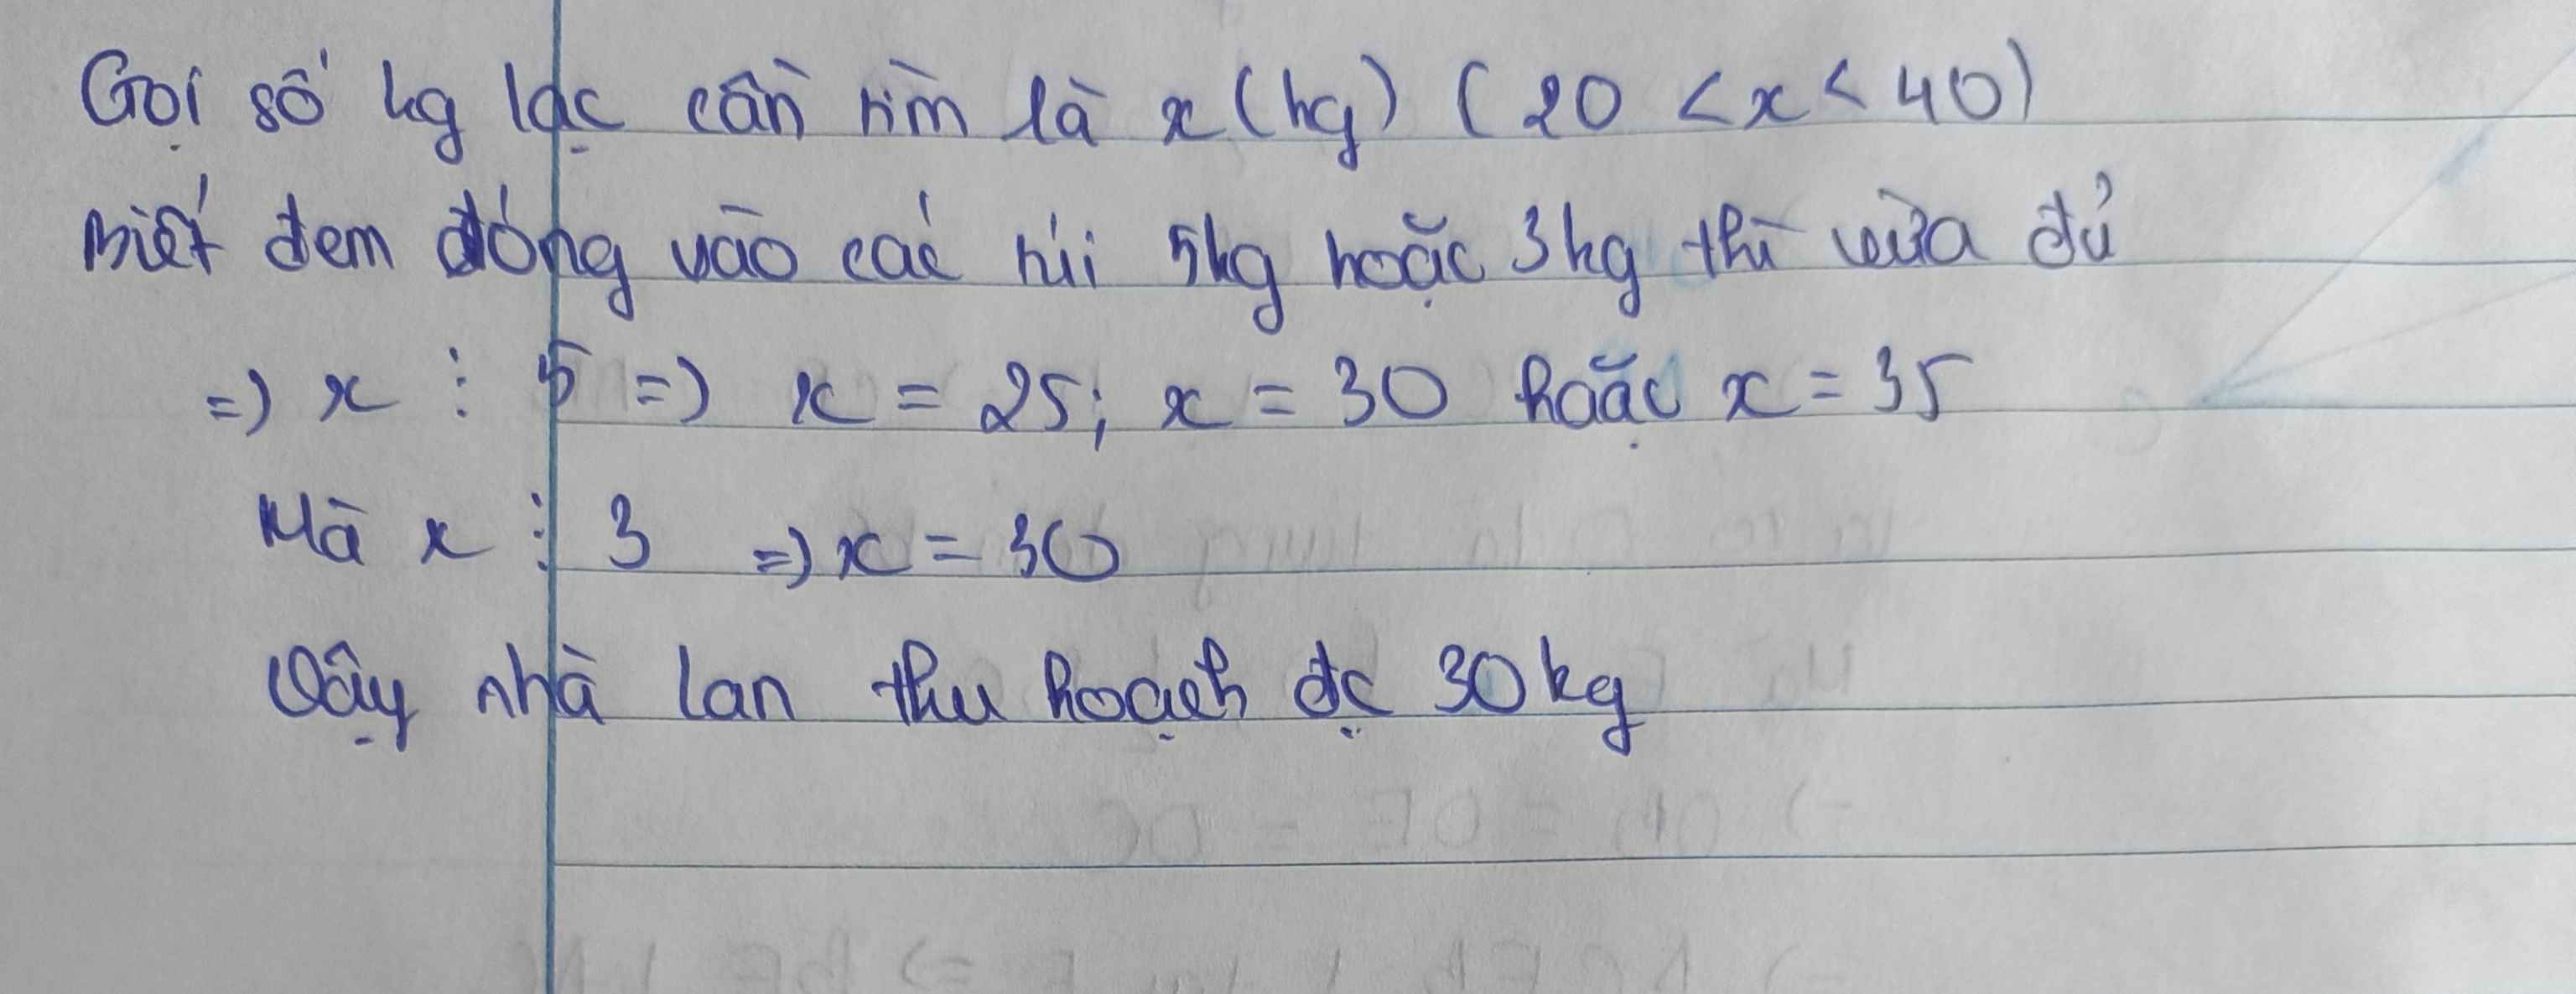 Gọi số kg lạc cần tìm là x (kg) ( 20 < x < 40)
Biết đem đóng vào các túi 5kg hoặc 3kg thì vừa đủ
=) x ⋮ 5 =) x = 25; x = 30 hoặc x = 35
Mà x ⋮ 3 =) x = 30
Vậy nhà lan thu hoạch đc 30kg